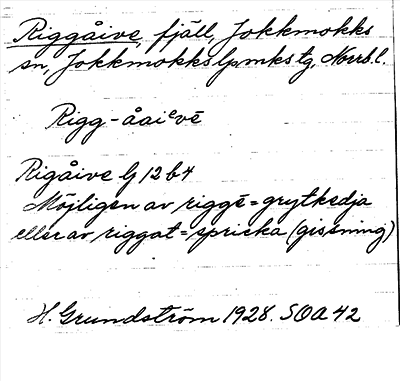 Riggåive, fjäll, Jokkmokks
sn, Jokkmokks lpmks tg, Norrb. l.
Rigg-åaiᵉvē
Rigåive G 12 b 4
Möjligen av riggē = grytkedja
eller av riggot = spricka (gissning)
H. Grundström 1928. SOA 42